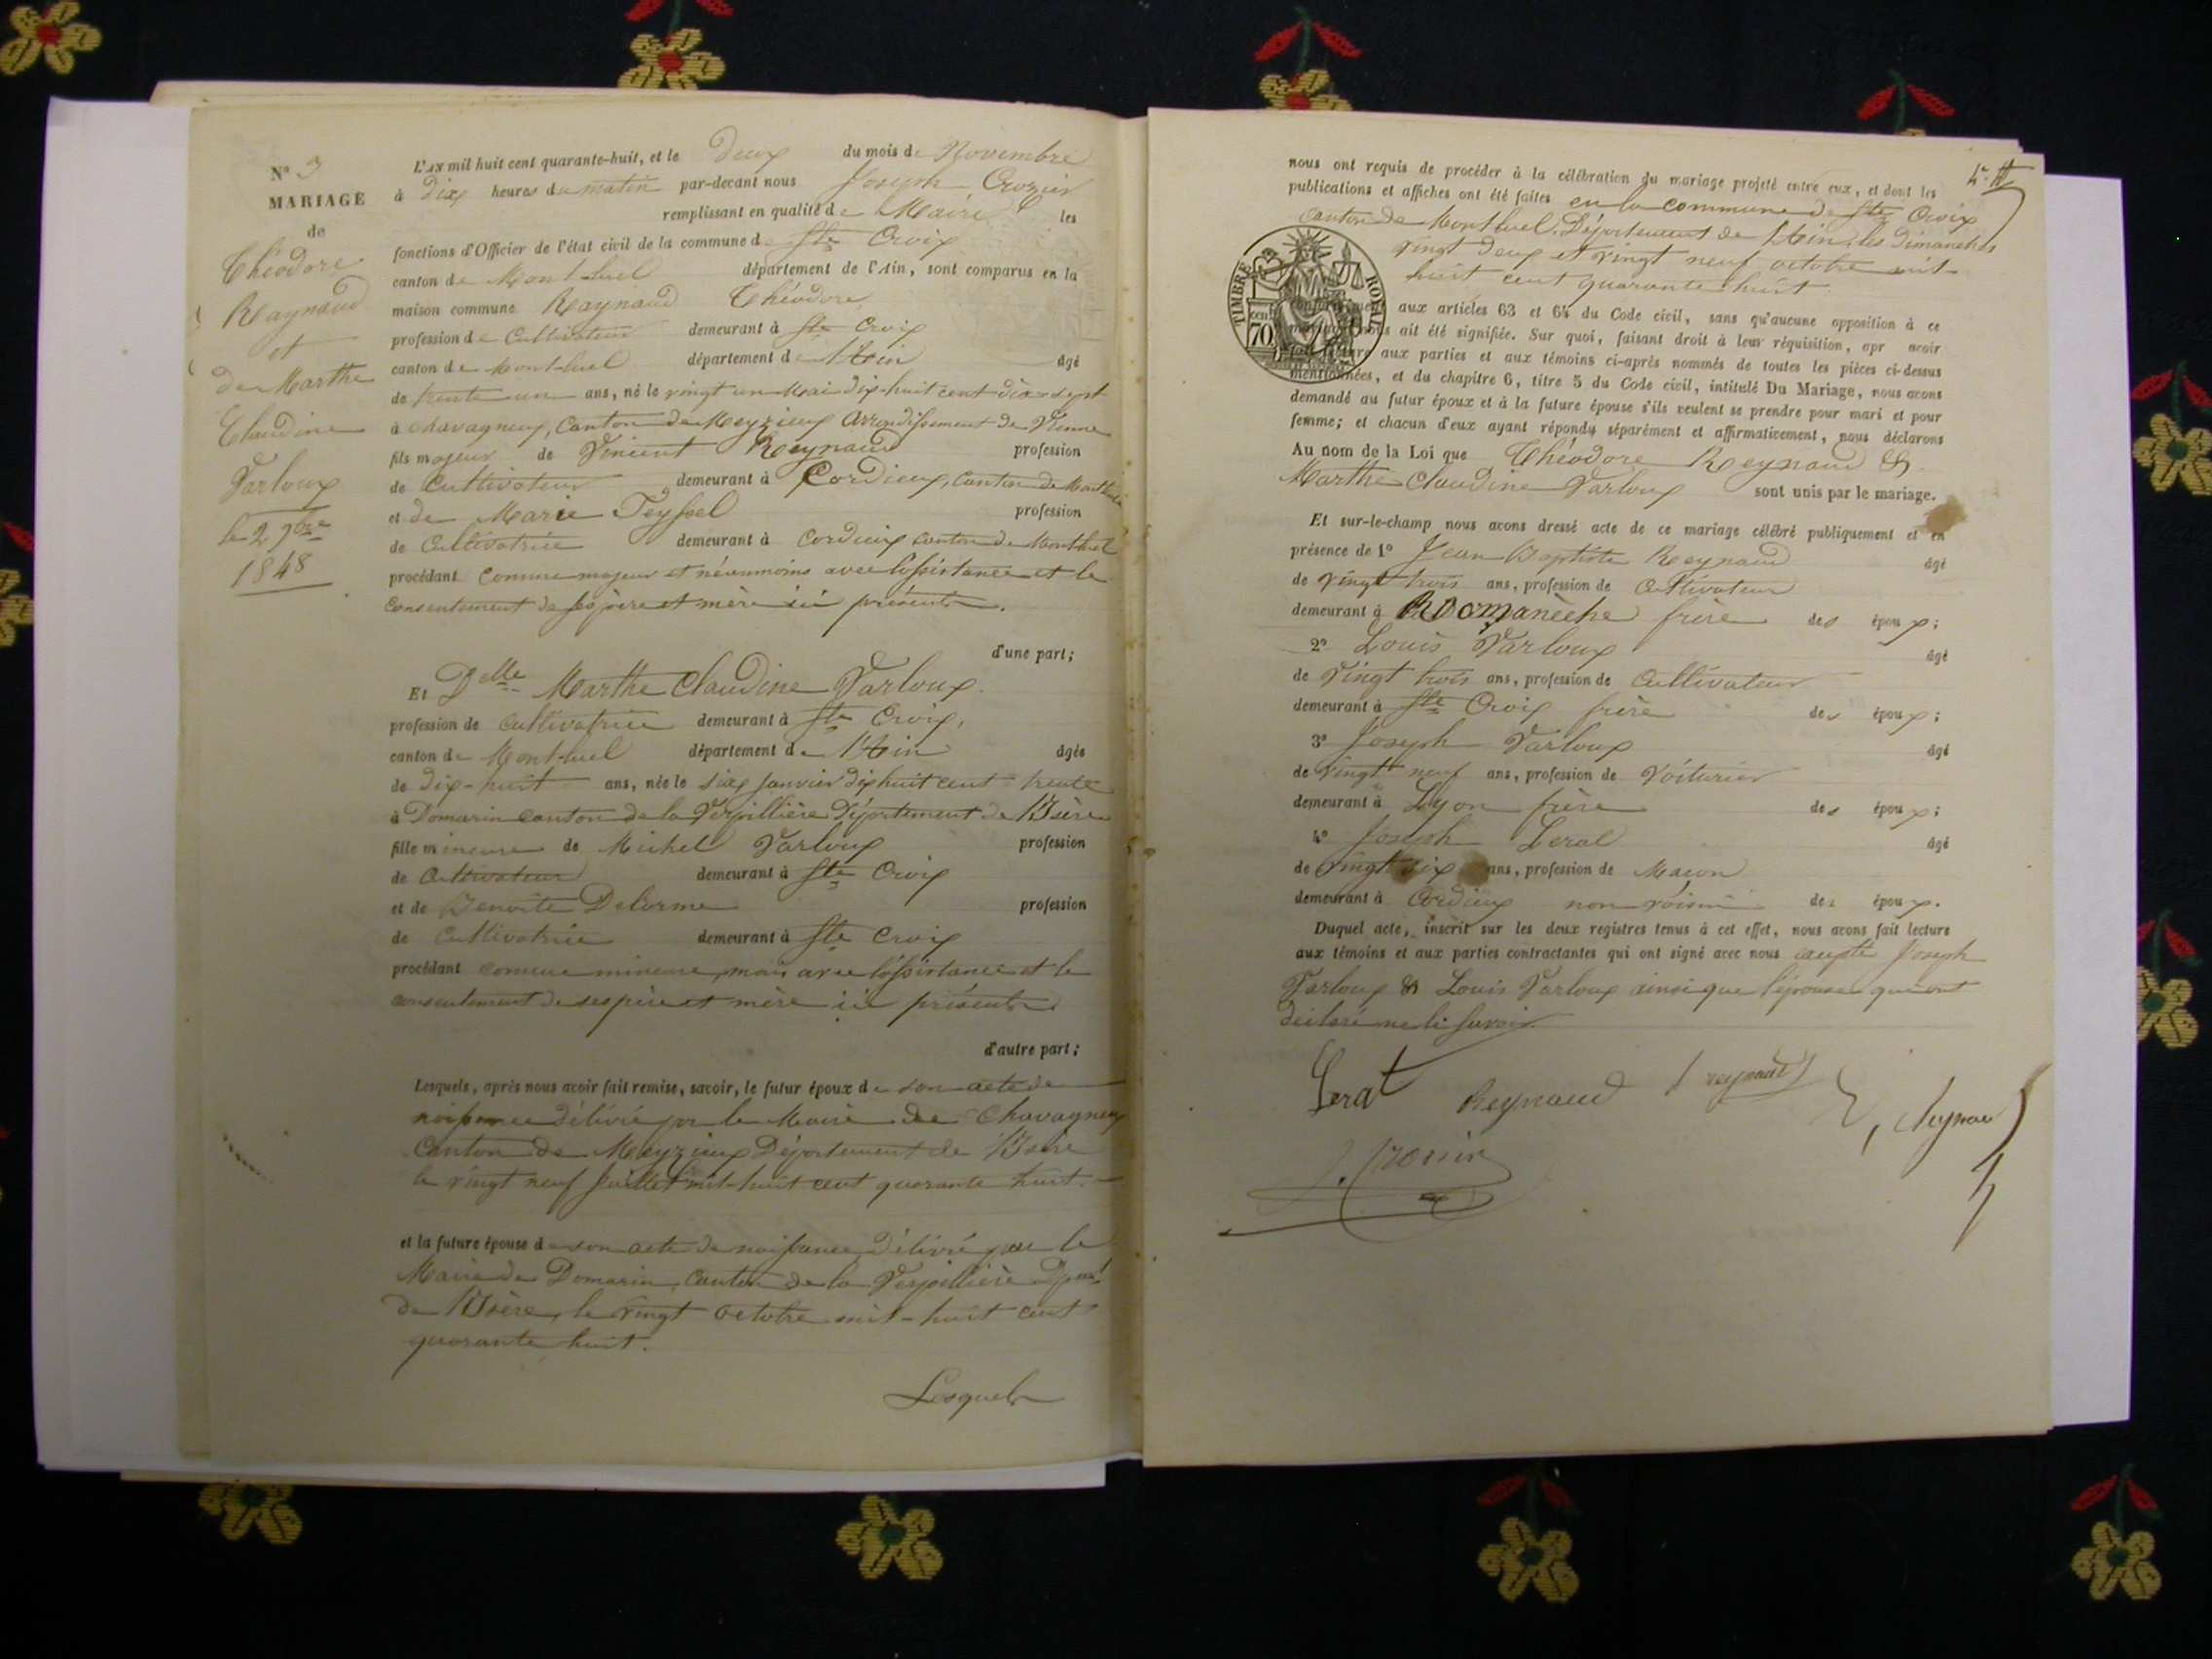 N° 3
MARIAGE
de
Théodore
Raynaud
et
de Marthe
Claudine
Varloux
le 2 9bre
1848
L'AN mil huit cent quarante-huit, et le Deux du mois de Novembre
à Dix heures du matin par-devant nous Joseph Crozier
remplissant en qualité de Maire les
fonctions d'Officier de l'état civil de la commune de Ste Croix
canton de Montluel département de l'Ain, sont comparus en la
maison commune Raynaud Théodore
profession de Cultivateur demeurant à Ste Croix
canton de Montluel département de l'Ain âgé
de trente un ans, né le vingt un Mai dix-huit cent dix-sept
à Chavagneux, Canton de Meyzieux Arrondissement de Vienne
fils majeur de Vincent Reynaud profession
de Cultivateur demeurant à Cordieux, Canton de Montluel
et de Marie Teyssel profession
de Cultivatrice demeurant à Cordieux canton de Montluel
procédant comme majeur et néanmoins avec l'assistance et le
consentement de ses père et mère ici présents.
d'une part;
Et Delle Marthe Claudine Varloux.
profession de Cultivatrice demeurant à Ste Croix,
canton de Montluel département de l'Ain âgée
de dix-huit ans, née le six Janvier dix huit cent trente
à Domarin canton de la Verpillière Département de l'Isère
fille mineure de Michel Varloux profession
de Cultivateur demeurant à Ste Croix
et de Benoite Delorme profession
de Cultivatrice demeurant à Ste Croix
procédant comme mineure, mais avec l'assistance et le
consentement de ses père et mère ici présents.
d'autre part;
Lesquels, après nous avoir fait remise, savoir, le futur époux de son acte de
naissance délivré par le Maire de Chavagneux
Canton de Meyzieux Département de l'Isère
le vingt neuf Juillet mil-huit cent quarante huit.
et la future épouse de son acte de naissance délivré par le
Maire de Domarin, Canton de la Verpillière Dpmt
de l'Isère, le vingt octobre mil-huit cent
quarante huit.
Lesquels
nous ont requis de procéder à la célébration du mariage projeté entre eux, et dont les
publications et affiches ont été faites en la commune de Ste Croix
Canton de Montluel, Département de l'Ain, les Dimanches
vingt deux et vingt neuf octobre mil-
huit cent quarante huit.
TIMBRE ROYAL
70 cent
aux articles 63 et 64 du Code civil, sans qu'aucune opposition à ce
ait été signifiée. Sur quoi, faisant droit à leur réquisition, apr avoir
aux parties et aux témoins ci-après nommés de toutes les pièces ci-dessus
mentionnées, et du chapitre 6, titre 5 du Code civil, intitulé Du Mariage, nous avons
demandé au futur époux et à la future épouse s'ils veulent se prendre pour mari et pour
femme; et chacun d'eux ayant répondu séparément et affirmativement, nous déclarons
Au nom de la Loi que Théodore Reynaud &
Marthe Claudine Varloux sont unis par le mariage.
Et sur-le-champ nous avons dressé acte de ce mariage célébré publiquement et en
présence de 1° Jean Baptiste Reynaud âgé
de vingt trois ans, profession de Cultivateur
demeurant à Romanèche frère des époux;
2° Louis Varloux âgé
de Vingt trois ans, profession de Cultivateur
demeurant à Ste Croix frère des époux;
3° Joseph Varloux âgé
de vingt neuf ans, profession de Voiturier
demeurant à Lyon frère des époux;
4° Joseph Leral âgé
de Vingt six ans, profession de Macon
demeurant à Cordieux non voisin des époux.
Duquel acte, inscrit sur les deux registres tenus à cet effet, nous avons fait lecture
aux témoins et aux parties contractantes qui ont signé avec nous excepté Joseph
Varloux & Louis Varloux ainsi que l'épouse qui ont
déclaré ne le savoir.
Lerat Reynaud reynaud
J. Crozier